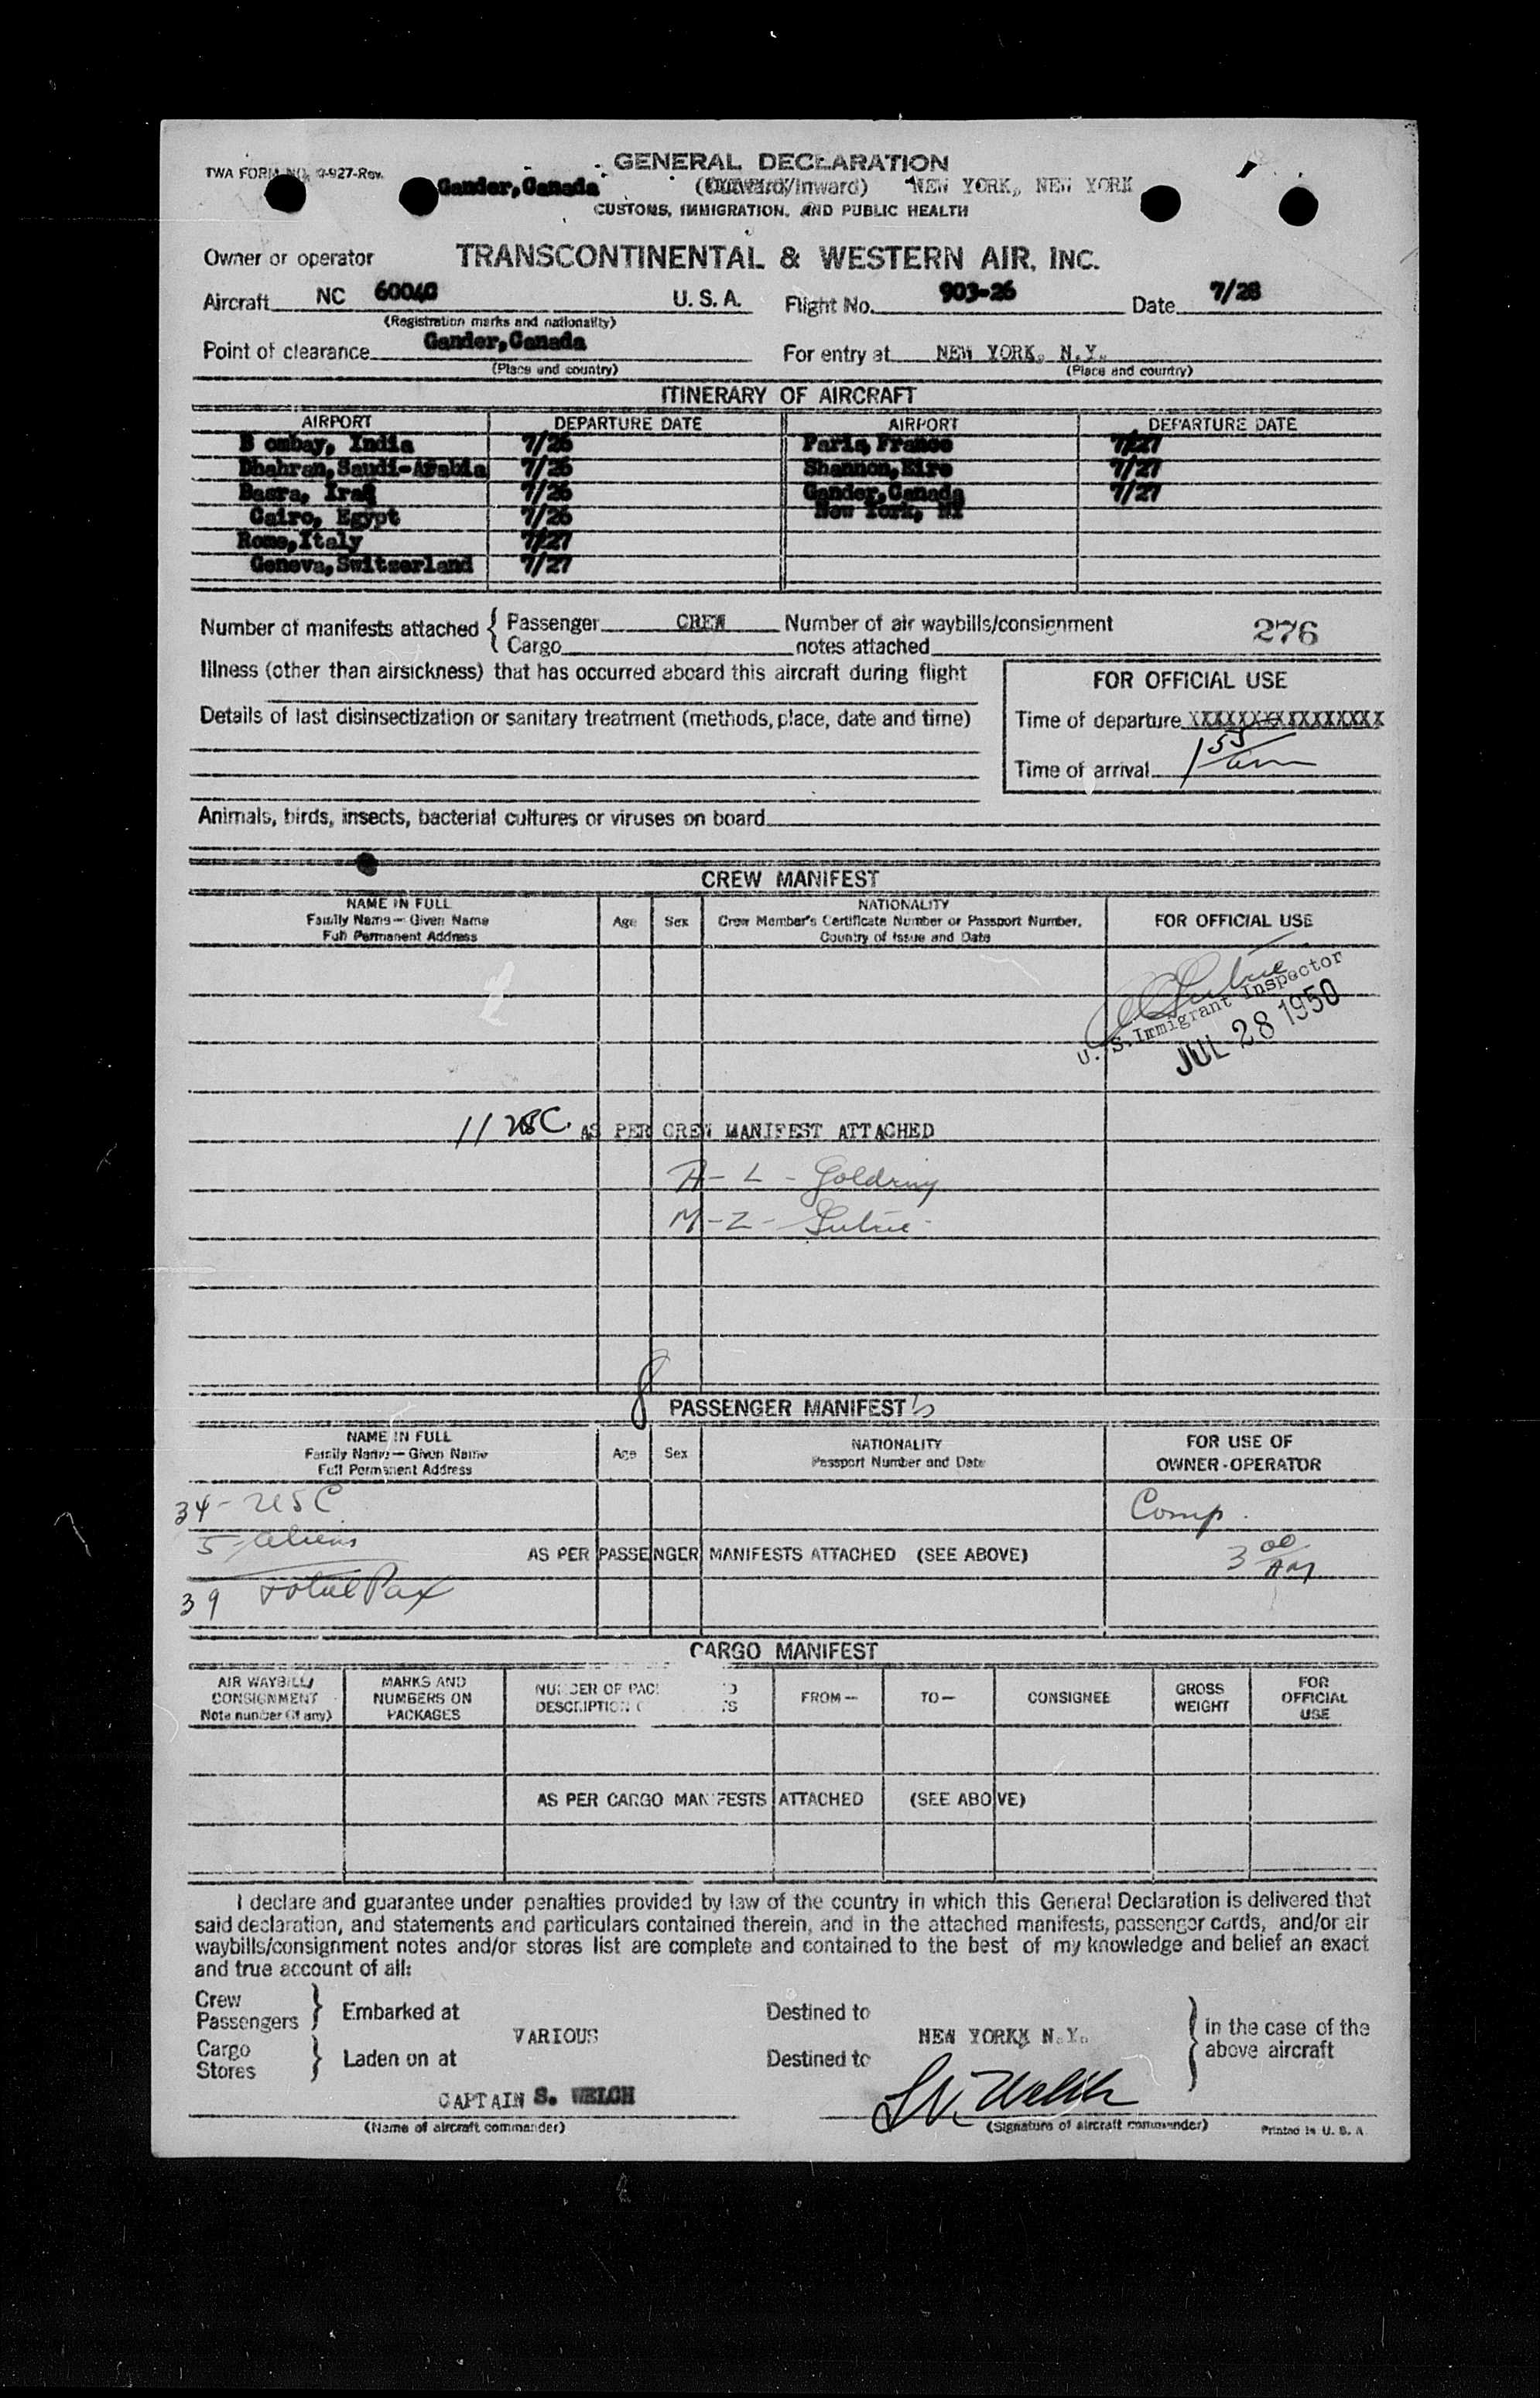 GENERAL DECLARATION
TWA FORM NO. 0-927-Rev.
Gander, Canada (Outward/Inward) NEW YORK, NEW YORK
CUSTOMS, IMMIGRATION, AND PUBLIC HEALTH
Owner or operator TRANSCONTINENTAL & WESTERN AIR, INC.
Aircraft NC 6004C U. S. A. Flight No. 903-26 Date 7/28
(Registration marks and nationality)
Point of clearance Gander, Canada For entry at NEW YORK, N.Y.
(Place and country) (Place and country)
ITINERARY OF AIRCRAFT
AIRPORT DEPARTURE DATE AIRPORT DEPARTURE DATE
B ombay, India 7/26 Paris, France 7/27
Dhahran, Saudi-Arabia 7/26 Shannon, Eire 7/27
Basra, Iraq 7/26 Gander, Canada 7/27
Cairo, Egypt 7/26 New York, NY
Rome, Italy 7/27
Geneva, Switzerland 7/27
Number of manifests attached { Passenger CREW Number of air waybills/consignment 276
Cargo notes attached
Illness (other than airsickness) that has occurred aboard this aircraft during flight
FOR OFFICIAL USE
Details of last disinsectization or sanitary treatment (methods, place, date and time)
Time of departure XXXXXXXXXXXXXXXX
Time of arrival 1 55 am
Animals, birds, insects, bacterial cultures or viruses on board
CREW MANIFEST
NAME IN FULL
Family Name — Given Name
Full Permanent Address
Age Sex
NATIONALITY
Crew Member's Certificate Number or Passport Number,
Country of Issue and Date
FOR OFFICIAL USE
U. S. Immigrant Inspector
JUL 28 1950
11 USC. AS PER CREW MANIFEST ATTACHED
A - L - Goldring
M - Z -
8 PASSENGER MANIFEST s
NAME IN FULL
Family Name — Given Name
Full Permanent Address
Age Sex
NATIONALITY
Passport Number and Date
FOR USE OF
OWNER-OPERATOR
34 - USC Comp.
5 - aliens AS PER PASSENGER MANIFESTS ATTACHED (SEE ABOVE) 3 00 AM
39 Total Pax
CARGO MANIFEST
AIR WAYBILL/
CONSIGNMENT
Note number (if any)
MARKS AND
NUMBERS ON
PACKAGES
NUMBER OF PAC
DESCRIPTION
FROM —
TO —
CONSIGNEE
GROSS
WEIGHT
FOR
OFFICIAL
USE
AS PER CARGO MANIFESTS ATTACHED (SEE ABOVE)
I declare and guarantee under penalties provided by law of the country in which this General Declaration is delivered that
said declaration, and statements and particulars contained therein, and in the attached manifests, passenger cards, and/or air
waybills/consignment notes and/or stores list are complete and contained to the best of my knowledge and belief an exact
and true account of all:
Crew
Passengers } Embarked at Destined to
VARIOUS NEW YORKK N.Y.
Cargo
Stores } Laden on at Destined to
} in the case of the
above aircraft
CAPTAIN S. WELCH S W. Welch
(Name of aircraft commander) (Signature of aircraft commander) Printed in U. S. A.